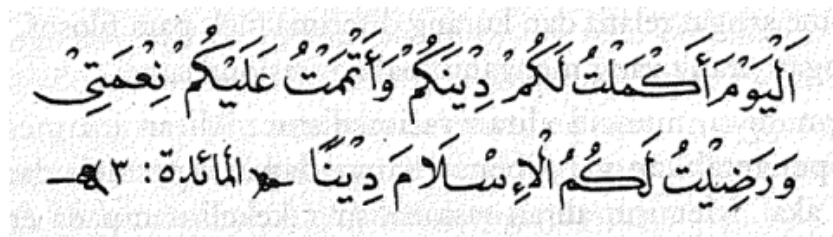 اَلْيَوْمَ أَكْمَلْتُ لَكُمْ دِيْنَكُمْ وَأَتْمَمْتُ عَلَيْكُمْ نِعْمَتِيْ
وَرَضِيْتُ لَكُمُ الْإِسْلَامَ دِيْنًا المائدة : ٣